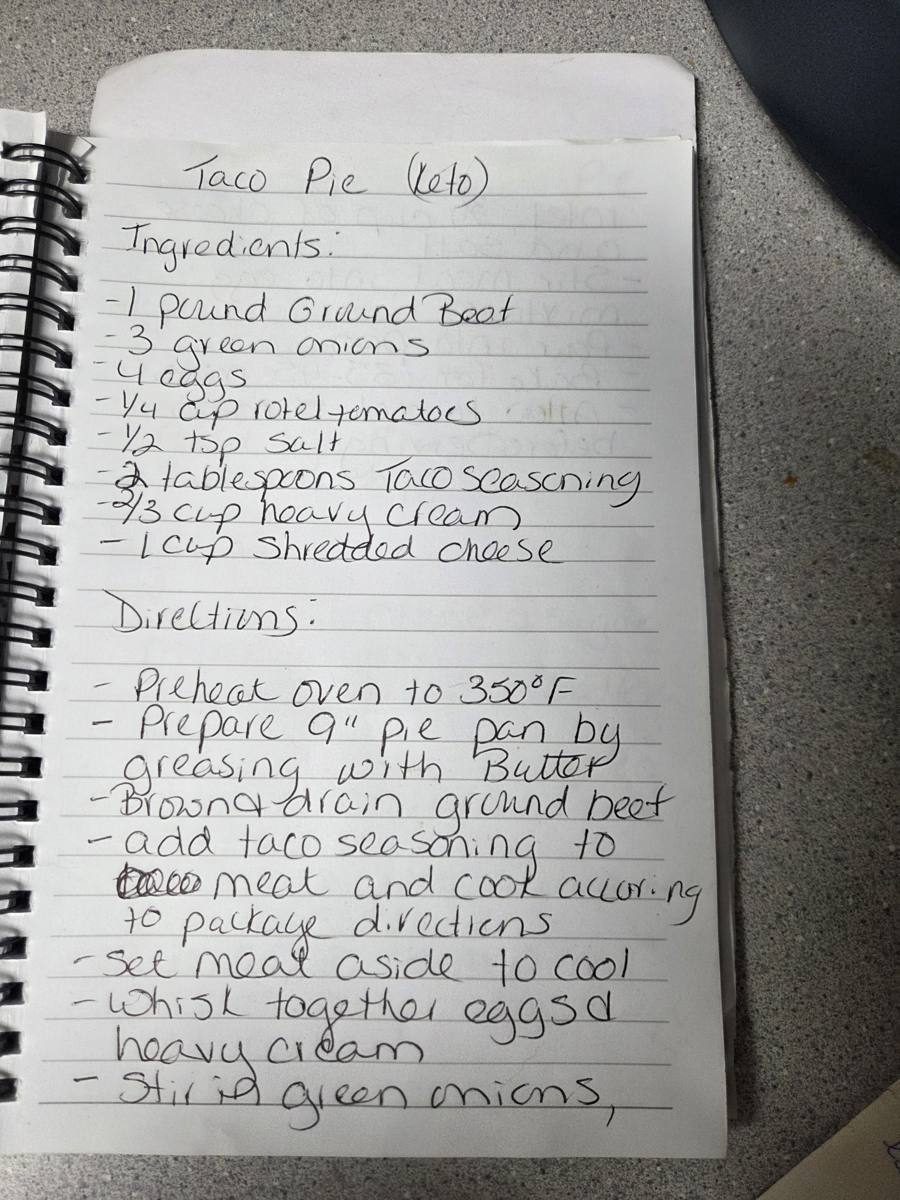 Taco Pie (Keto)
Ingredients:
- 1 pound Ground Beef
- 3 green onions
- 4 eggs
- 1/4 cup rotel tomatoes
- 1/2 tsp Salt
- 2 tablespoons Taco seasoning
- 2/3 cup heavy cream
- 1 cup Shredded cheese
Directions:
- Preheat oven to 350°F
- Prepare 9" pie pan by
greasing with Butter
- Brown & drain ground beef
- add taco seasoning to
meat and cook accoring
to package directions
- Set meat aside to cool
- Whisk together eggs &
heavy cream
- Stir in green onions,